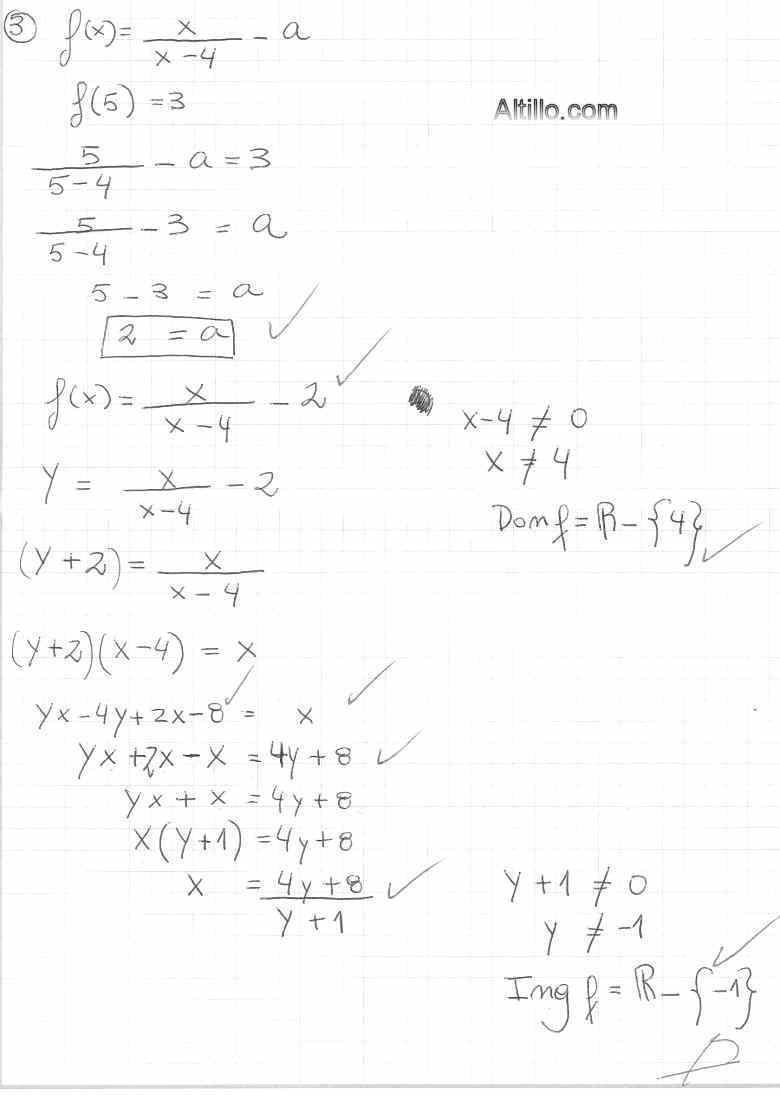 ③ f(x) = x/(x-4) - a
f(5) = 3
Altillo.com
5/(5-4) - a = 3
5/(5-4) - 3 = a
5 - 3 = a
2 = a ✓
f(x) = x/(x-4) - 2 ✓
x-4 ≠ 0
x ≠ 4
Y = x/(x-4) - 2
Dom f = R - {4} ✓
(Y+2) = x/(x-4)
(y+2)(x-4) = x
yx - 4y + 2x - 8 ✓ = x ✓
yx + 2x - x = 4y + 8 ✓
yx + x = 4y + 8
x(y+1) = 4y + 8
x = (4y+8)/(y+1) ✓
y + 1 ≠ 0
y ≠ -1
Img f = R - {-1} ✓